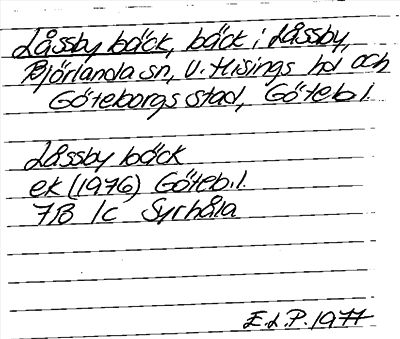 Låssby bäck, bäck i Låssby,
Björlanda sn, V. Hisings hd och
Göteborgs stad, Göteb l.
Låssby bäck
ek (1976) Göteb. l.
7B 1c Syrhåla
E.L.P. 1977